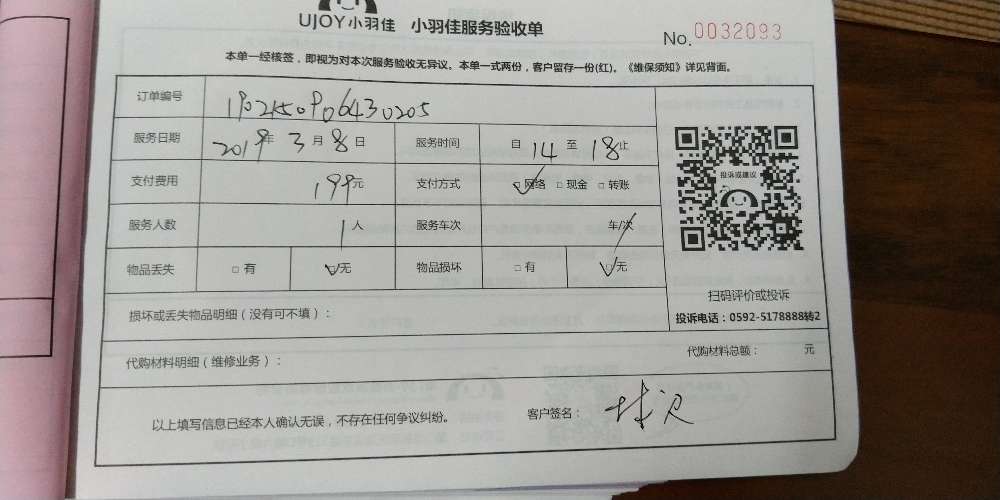 UJOY小羽佳 小羽佳服务验收单
No. 0032093
本单一经核签，即视为对本次服务验收无异议。本单一式两份，客户留存一份(红)。《维保须知》详见背面。
订单编号
服务日期 2019年 3月 8日 服务时间 自 14 至 18止
支付费用 199元 支付方式 □网络 □现金 □转账
服务人数 1人 服务车次 车/次
物品丢失 □有 □无 物品损坏 □有 □无
投诉或建议
扫码评价或投诉
投诉电话：0592-5178888转2
损坏或丢失物品明细（没有可不填）：
代购材料明细（维修业务）： 代购材料总额： 元
以上填写信息已经本人确认无误，不存在任何争议纠纷。 客户签名：